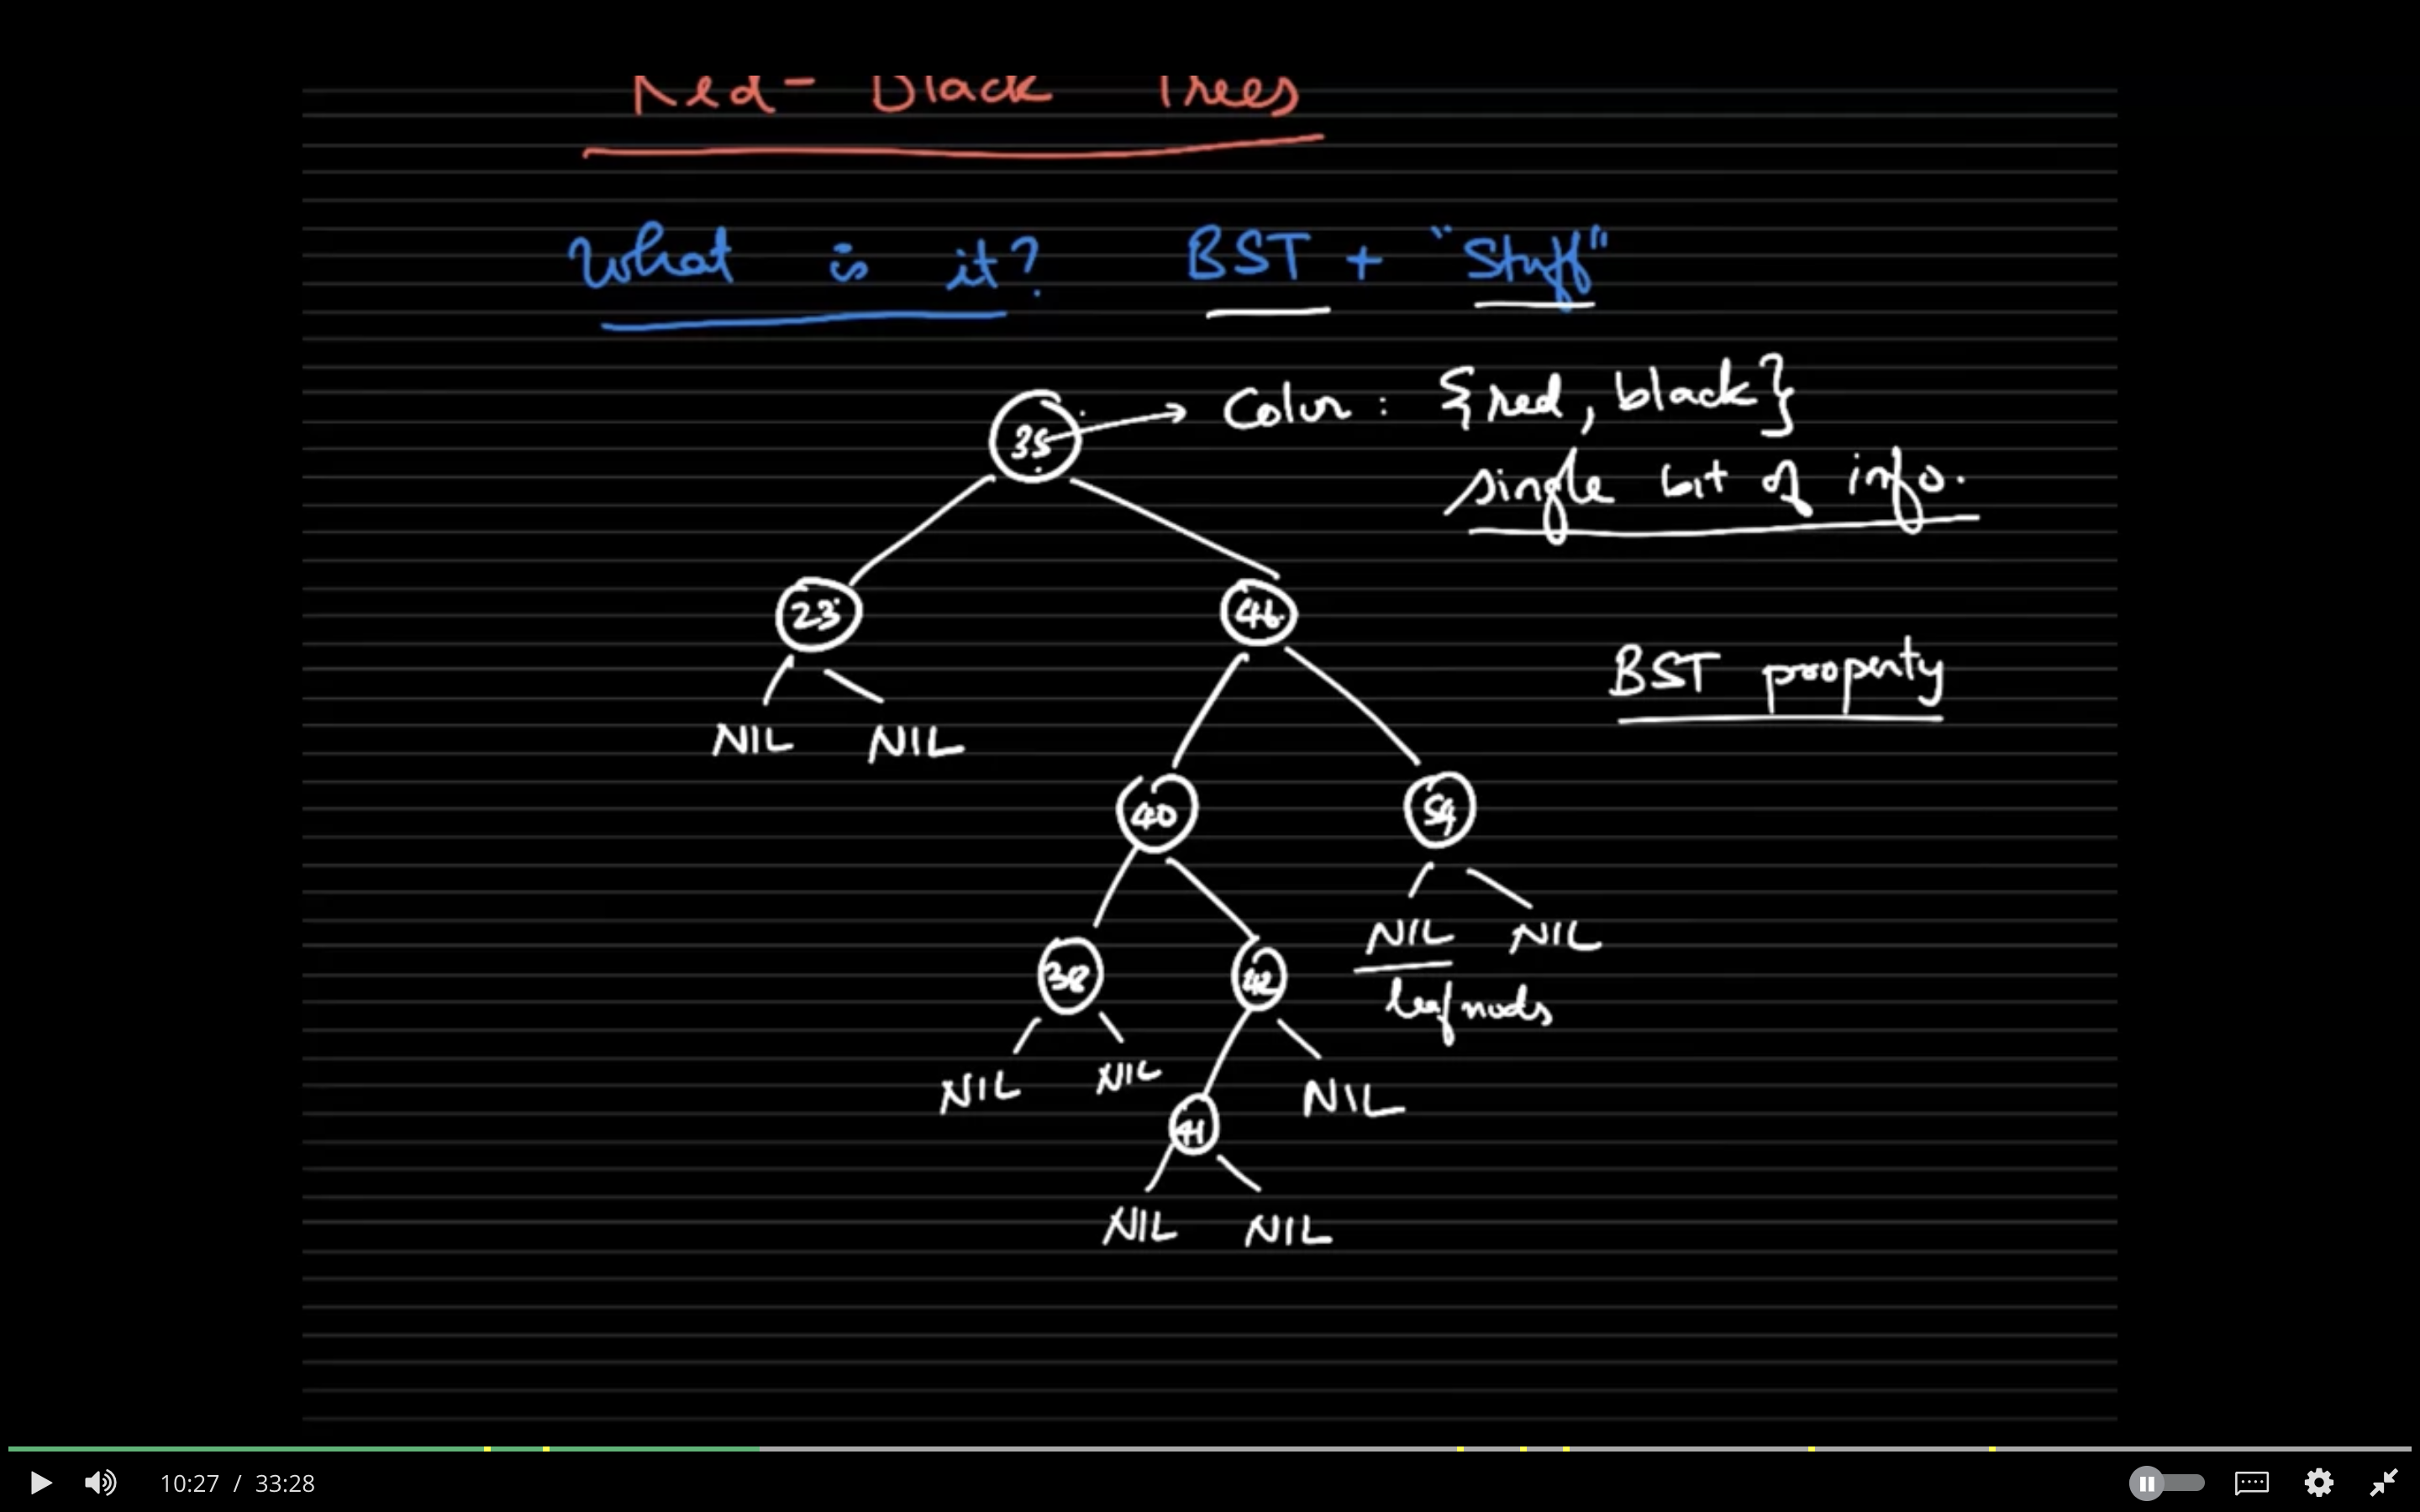 Red-Black Trees
What is it? BST + "Stuff"
35 → Color : {red, black}
single bit of info.
23 46
BST property
NIL NIL
40 54
NIL NIL
38 42
leaf nods
NIL NIL NIL
41
NIL NIL
10:27 / 33:28